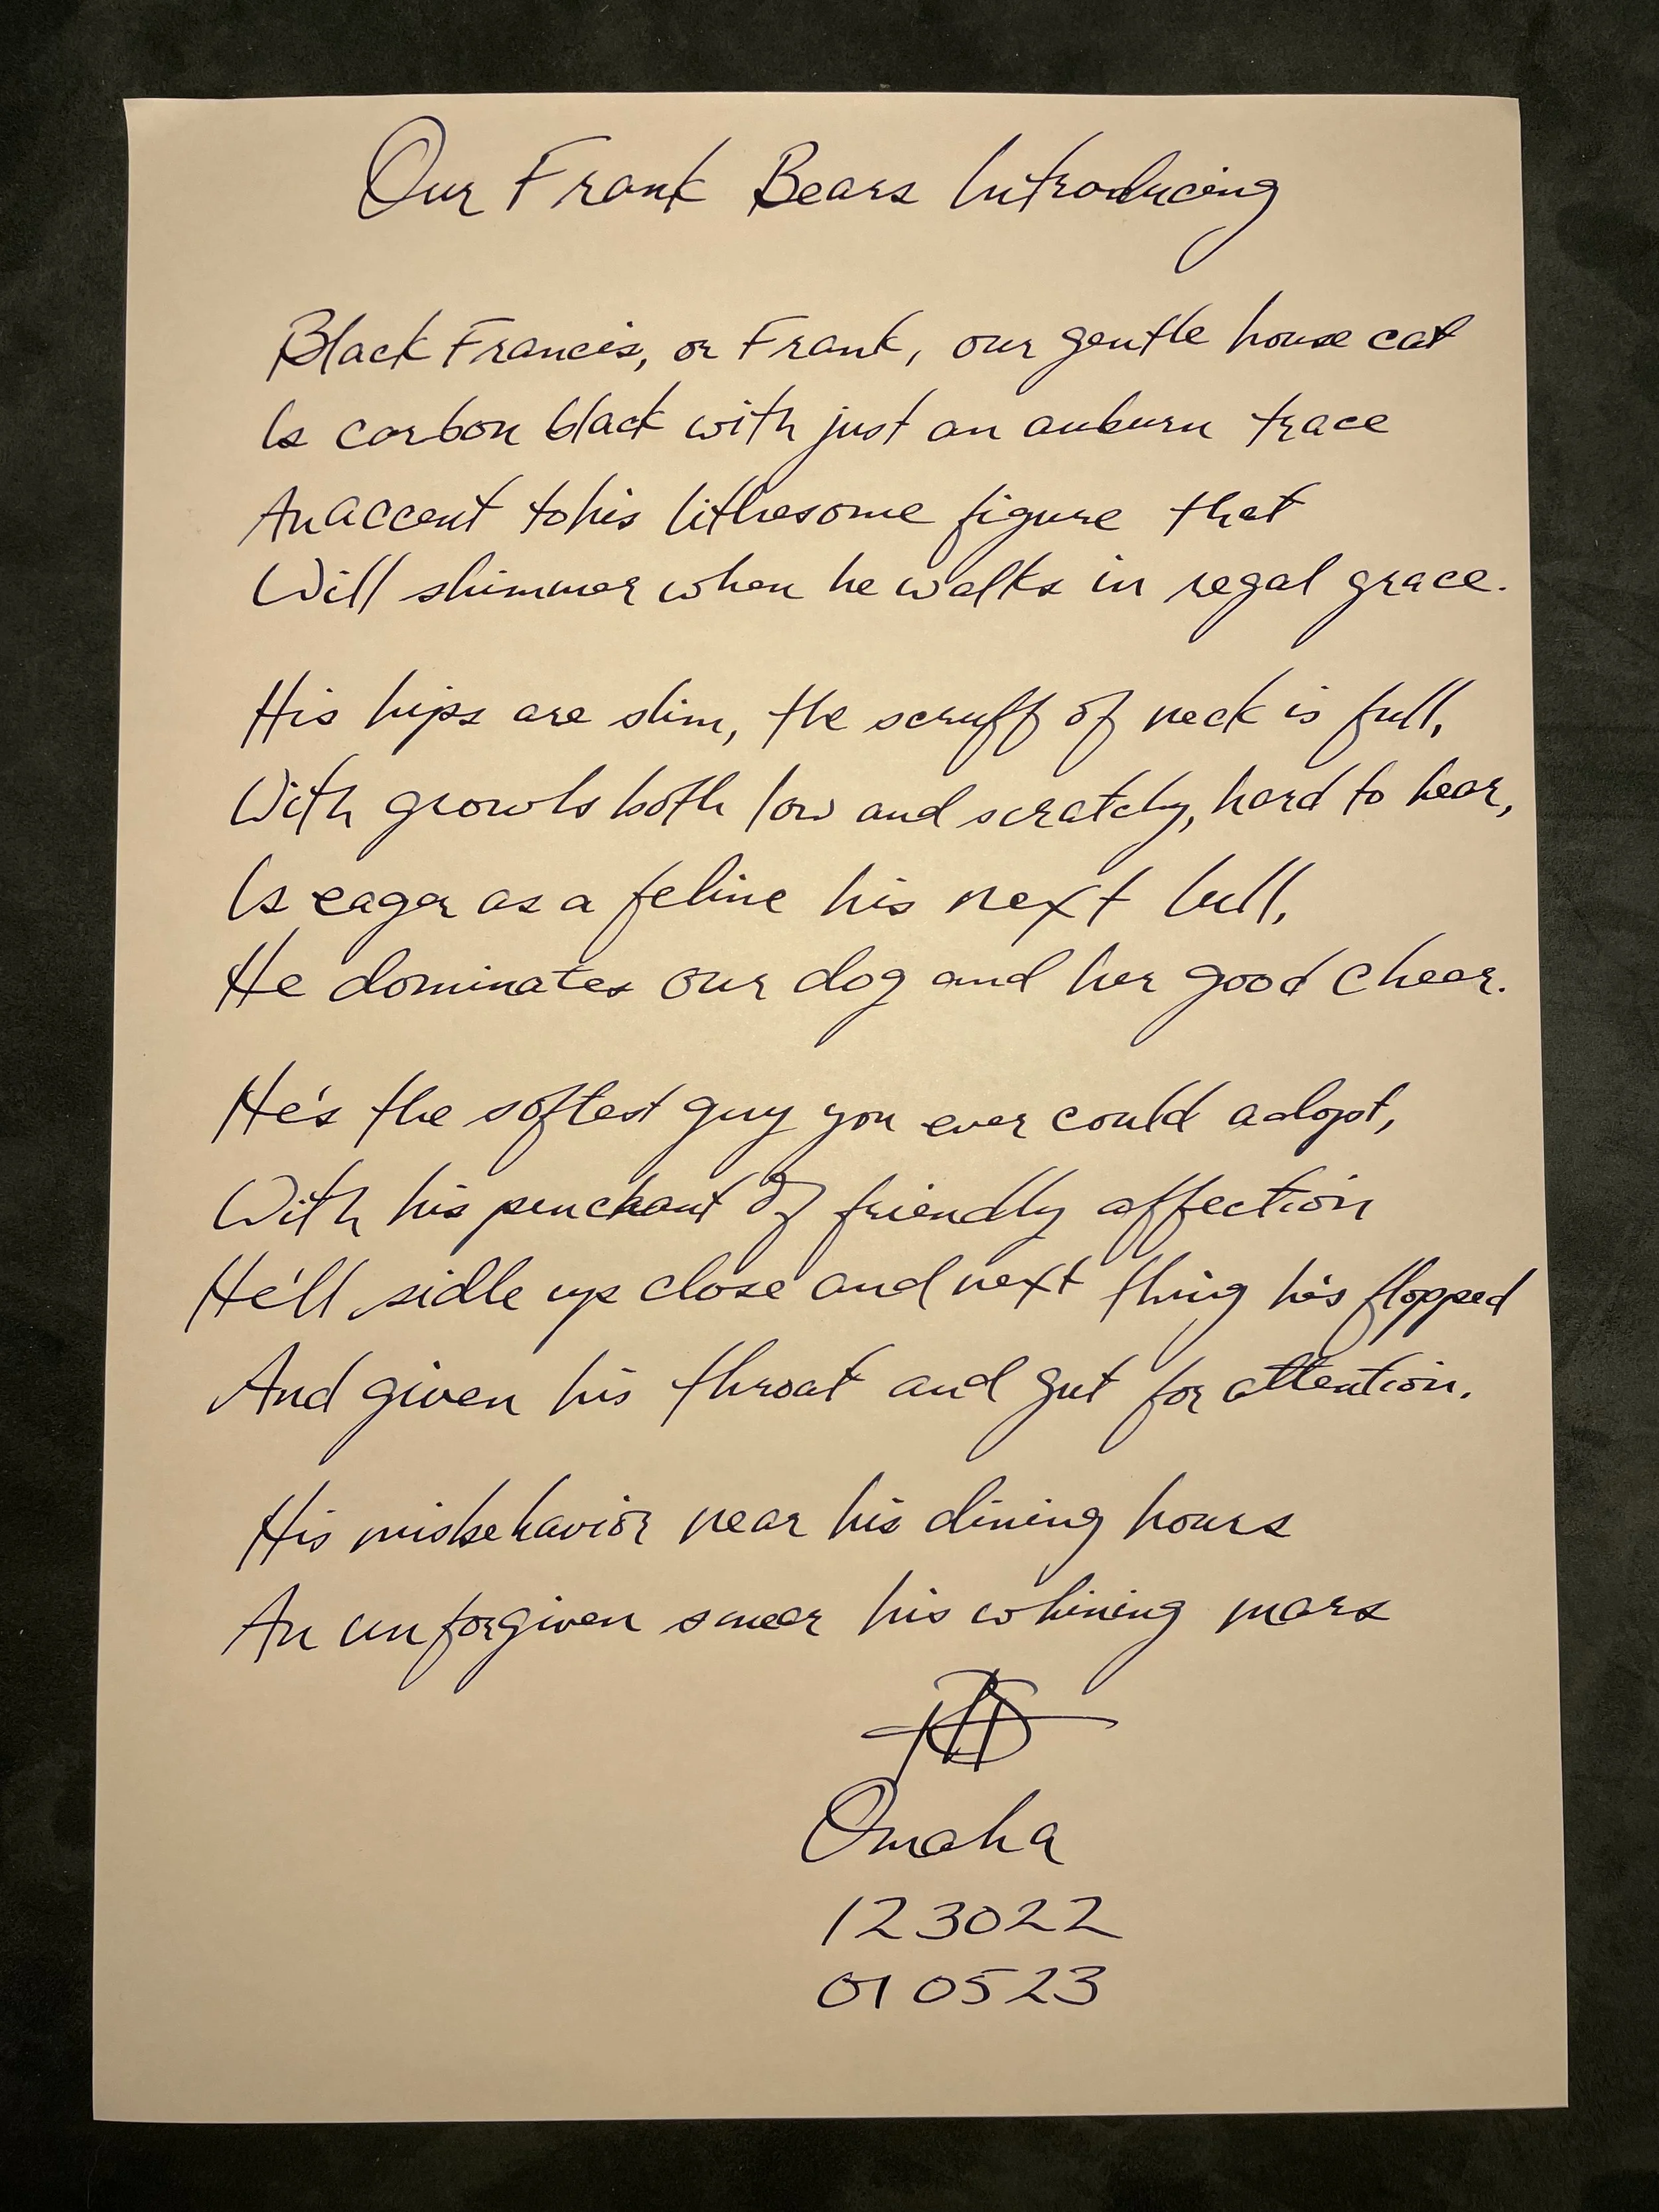 Our Frank Bears Introducing
Black Francis, or Frank, our gentle house cat
Is carbon black with just an auburn trace
An accent to his lithesome figure that
Will shimmer when he walks in regal grace.
His hips are slim, the scruff of neck is full,
With growls both low and scratchy, hard to hear,
Is eager as a feline his next lull,
He dominates our dog and her good cheer.
He's the softest guy you ever could adopt,
With his penchant of friendly affection
He'll sidle up close and next thing he's flopped
And given his throat and gut for attention.
His misbehavior near his dining hours
An unforgiven smear his whining mars
Omaha
123022
010523